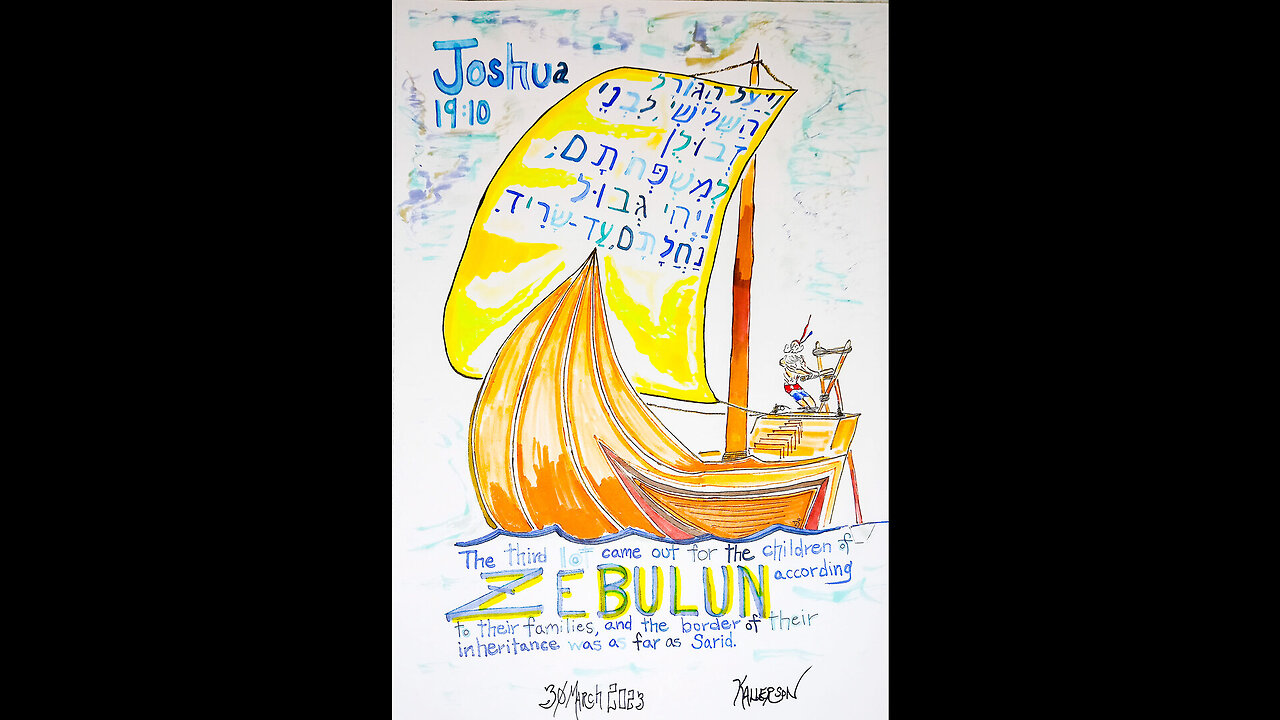 Joshua
19:10
וַיַּעַל הַגּוֹרָל
הַשְּׁלִישִׁי, לִבְנֵי
זְבוּלֻן
לְמִשְׁפְּחֹתָם;
וַיְהִי גְּבוּל
נַחֲלָתָם, עַד-שָׂרִיד.
The third lot came out for the children of
ZEBULUN according
to their families, and the border of their
inheritance was as far as Sarid.
30 March 2023
KALLERSON